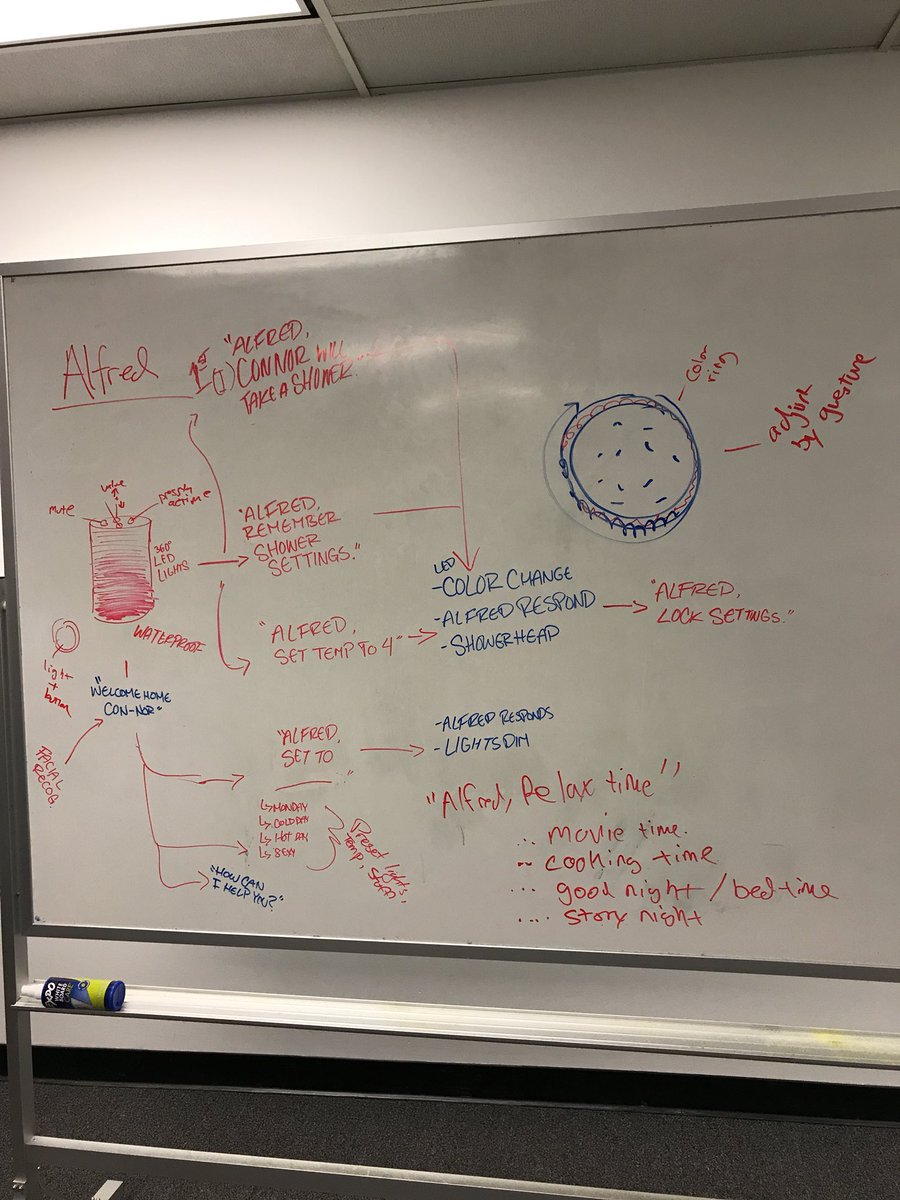 Alfred
1st
"ALFRED,
1) CONNOR WILL
TAKE A SHOWER."
color
ring
adjust
by guesture
mute
volume
360°
LED
LIGHTS
WATERPROOF
light
+
button
"ALFRED,
REMEMBER
SHOWER
SETTINGS."
"ALFRED,
SET TEMP TO 4"
LED
-COLOR CHANGE
-ALFRED RESPOND
-SHOWERHEAD
"ALFRED,
LOCK SETTINGS."
"WELCOME HOME
CON-NOR"
FACIAL
RECOG.
"ALFRED,
SET TO
___."
MONDAY
COLD DAY
HOT DAY
SEXY
Preset lights,
Temp,
"HOW CAN
I HELP YOU?"
-ALFRED RESPONDS
-LIGHTS DIM
"Alfred, Relax time"
... movie time.
... cooking time
... good night/bedtime
.... story night
EXPO
WHITE
BOARD
CARE